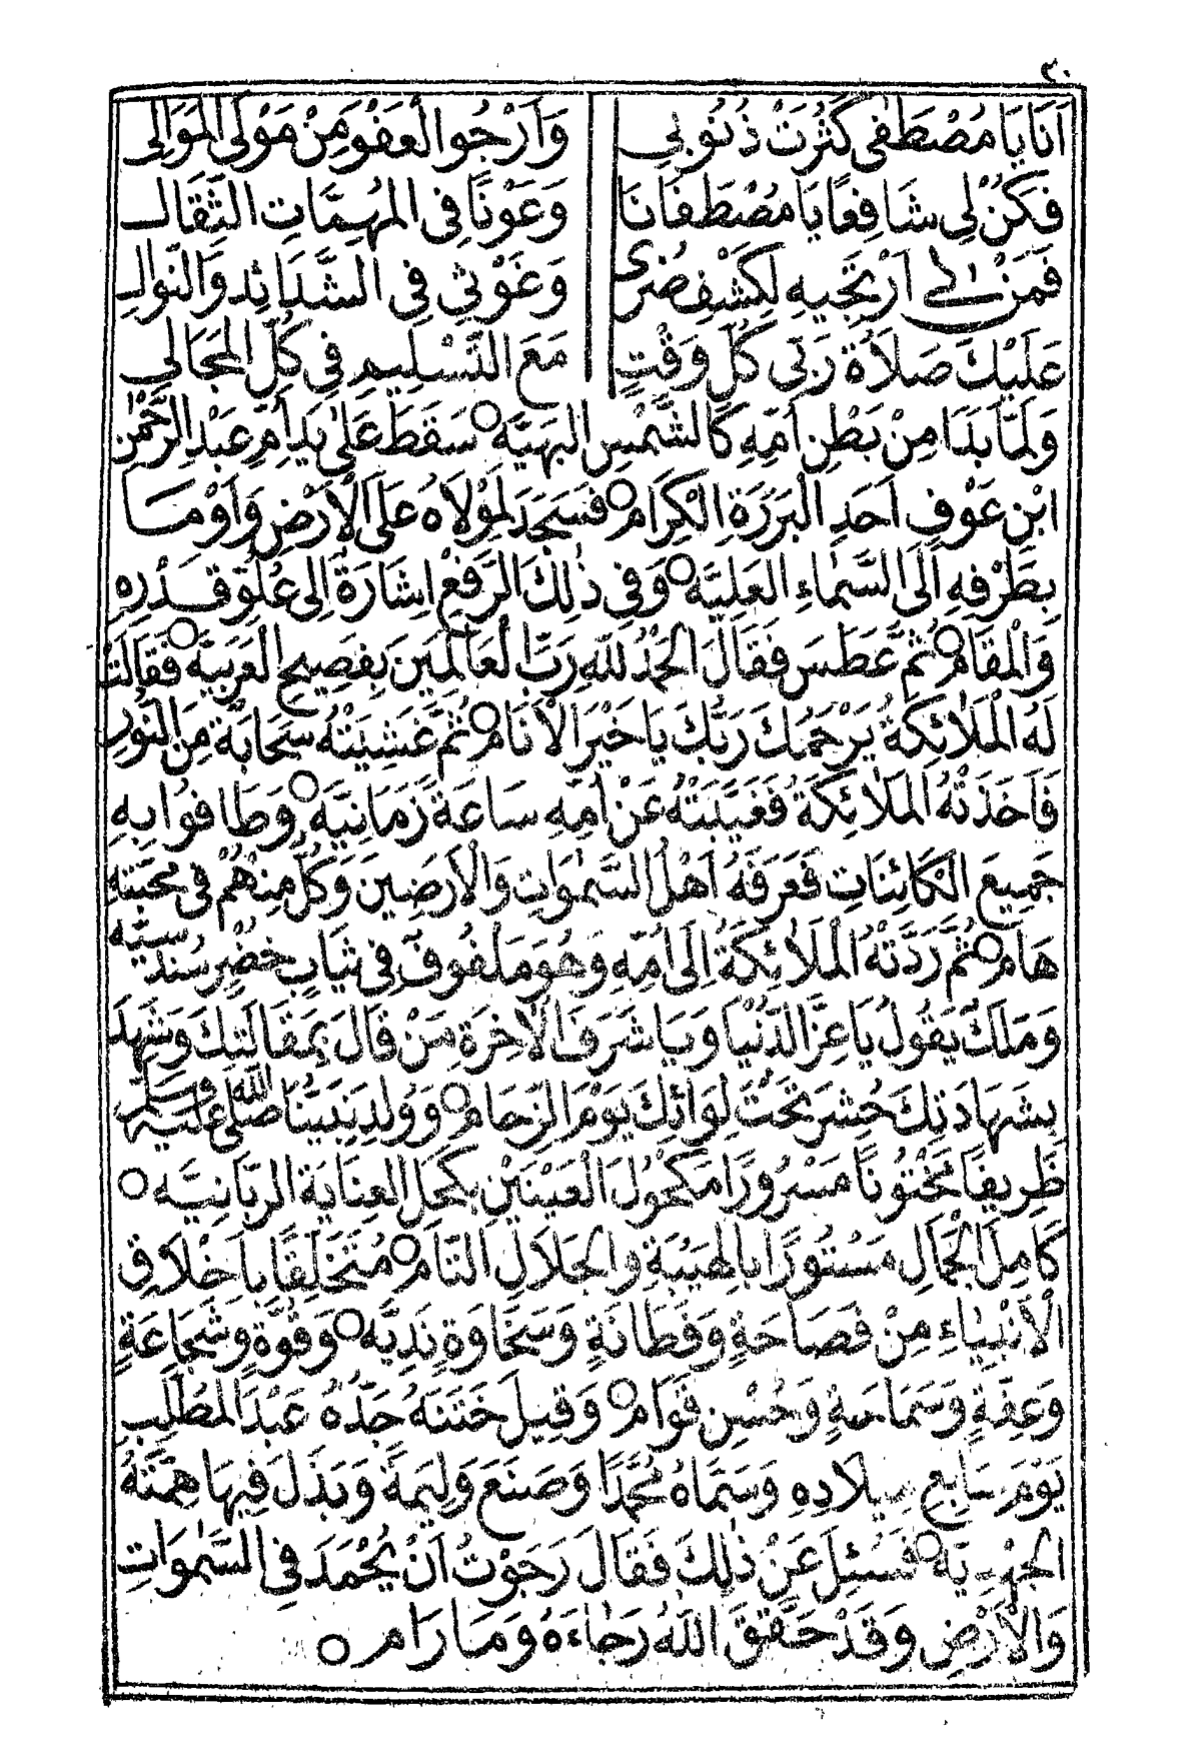 ٢٠
اَنَا يَا مُصْطَفٰى كَثُرَتْ ذُنُوْبِى وَاَرْجُوا الْعَفْوَ مِنْ مَوْلَى الْمَوَالِى
فَكُنْ لِى شَافِعًا يَا مُصْطَفَانَا وَعَوْنًا فِى الْمُهِمَّاتِ الثِّقَالِ
فَمَنْ لِى اَرْتَجِيهِ لِكَشْفِ ضُرِّى وَغَوْثِي فِى الشَّدَائِدِ وَالنَّوَالِ
عَلَيْكَ صَلَاةُ رَبِّى كُلَّ وَقْتٍ مَعَ التَّسْلِيمِ فِى كُلِّ الْمَجَالِى
وَلَمَّا بَدَا مِنْ بَطْنِ اُمِّهِ كَالشَّمْسِ الْبَهِيَّه سَقَطَ عَلٰى يَدِ اُمِّ عَبْدِ الرَّحْمٰنِ
ابْنِ عَوْفٍ اَحَدِ الْبَرَرَةِ الْكِرَام فَسَجَدَ لِمَوْلَاهُ عَلَى الْاَرْضِ وَاَوْمَا
بِطَرْفِهِ اِلَى السَّمٰاءِ الْعَلِيَّه وَفِى ذٰلِكَ الرَّفْعِ اِشَارَةٌ اِلٰى عُلُوِّ قَدْرِهِ
وَالْمَقَام ثُمَّ عَطَسَ فَقَالَ الْحَمْدُ لِلّٰهِ رَبِّ الْعَالَمِيْنَ بِفَصِيحِ الْعَرَبِيَّة فَقَالَتْ
لَهُ الْمَلَائِكَةُ يَرْحَمُكَ رَبُّكَ يَا خَيْرَ الْاَنَام ثُمَّ غَشِيَتْهُ سَحَابَةٌ مِنَ النُّوْرِ
فَاَخَذَتْهُ الْمَلَائِكَةُ فَغَيَّبَتْهُ عَنْ اُمِّهِ سَاعَةً زَمَانِيَّه وَطَافُوا بِهِ
جَمِيعَ الْكَائِنَاتِ فَعَرَفَهُ اَهْلُ السَّمٰوَاتِ وَالْاَرَضِيْنَ وَكُلٌّ مِنْهُمْ فِى مَحَبَّتِهِ
هَامَ ثُمَّ رَدَّتْهُ الْمَلَائِكَةُ اِلٰى اُمِّهِ وَهُوَ مَلْفُوفٌ فِى ثِيَابٍ خُضْرٍ سُنْدُسِيَّه
وَمَلَكٌ يَقُولُ يَا عِزَّ الدُّنْيَا وَيَا شَرَفَ الْاٰخِرَةِ مَنْ قَالَ بِمَقَالَتِكَ وَشَهِدَ
بِشَهَادَتِكَ حُشِرَ تَحْتَ لِوَائِكَ يَوْمَ الزِّحَام وَوُلِدَ نَبِيُّنَا صَلَّى اللّٰهُ عَلَيْهِ وَسَلَّمَ
ظَرِيفًا مَخْتُوْنًا مَسْرُوْرًا مَكْحُوْلَ الْعَيْنَيْنِ بِكُحْلِ الْعِنَايَةِ الرَّبَّانِيَّه
كَامِلَ الْجَمَالِ مَسْتُوْرًا بِالْهَيْبَةِ وَالْجَلَالِ التَّام مُتَخَلِّقًا بِاَخْلَاقِ
الْاَنْبِيَاءِ مِنْ فَصَاحَةٍ وَفَطَانَةٍ وَسَخَاوَةٍ نَدِيَّه وَقُوَّةٍ وَشَجَاعَةٍ
وَعِفَّةٍ وَسَمَاحَةٍ وَحُسْنِ قَوَام وَقِيلَ خَتَنَهُ جَدُّهُ عَبْدُ الْمُطَّلِبِ
يَوْمَ سَابِعِ مِيلَادِهِ وَسَمَّاهُ مُحَمَّدًا وَصَنَعَ وَلِيمَةً وَبَذَلَ فِيهَا هِمَّتَهُ
الْجَهْدِيَّه فَسُئِلَ عَنْ ذٰلِكَ فَقَالَ رَجَوْتُ اَنْ يُحْمَدَ فِى السَّمٰوَاتِ
وَالْاَرْضِ وَقَدْ حَقَّقَ اللّٰهُ رَجَاءَهُ وَمَا رَام